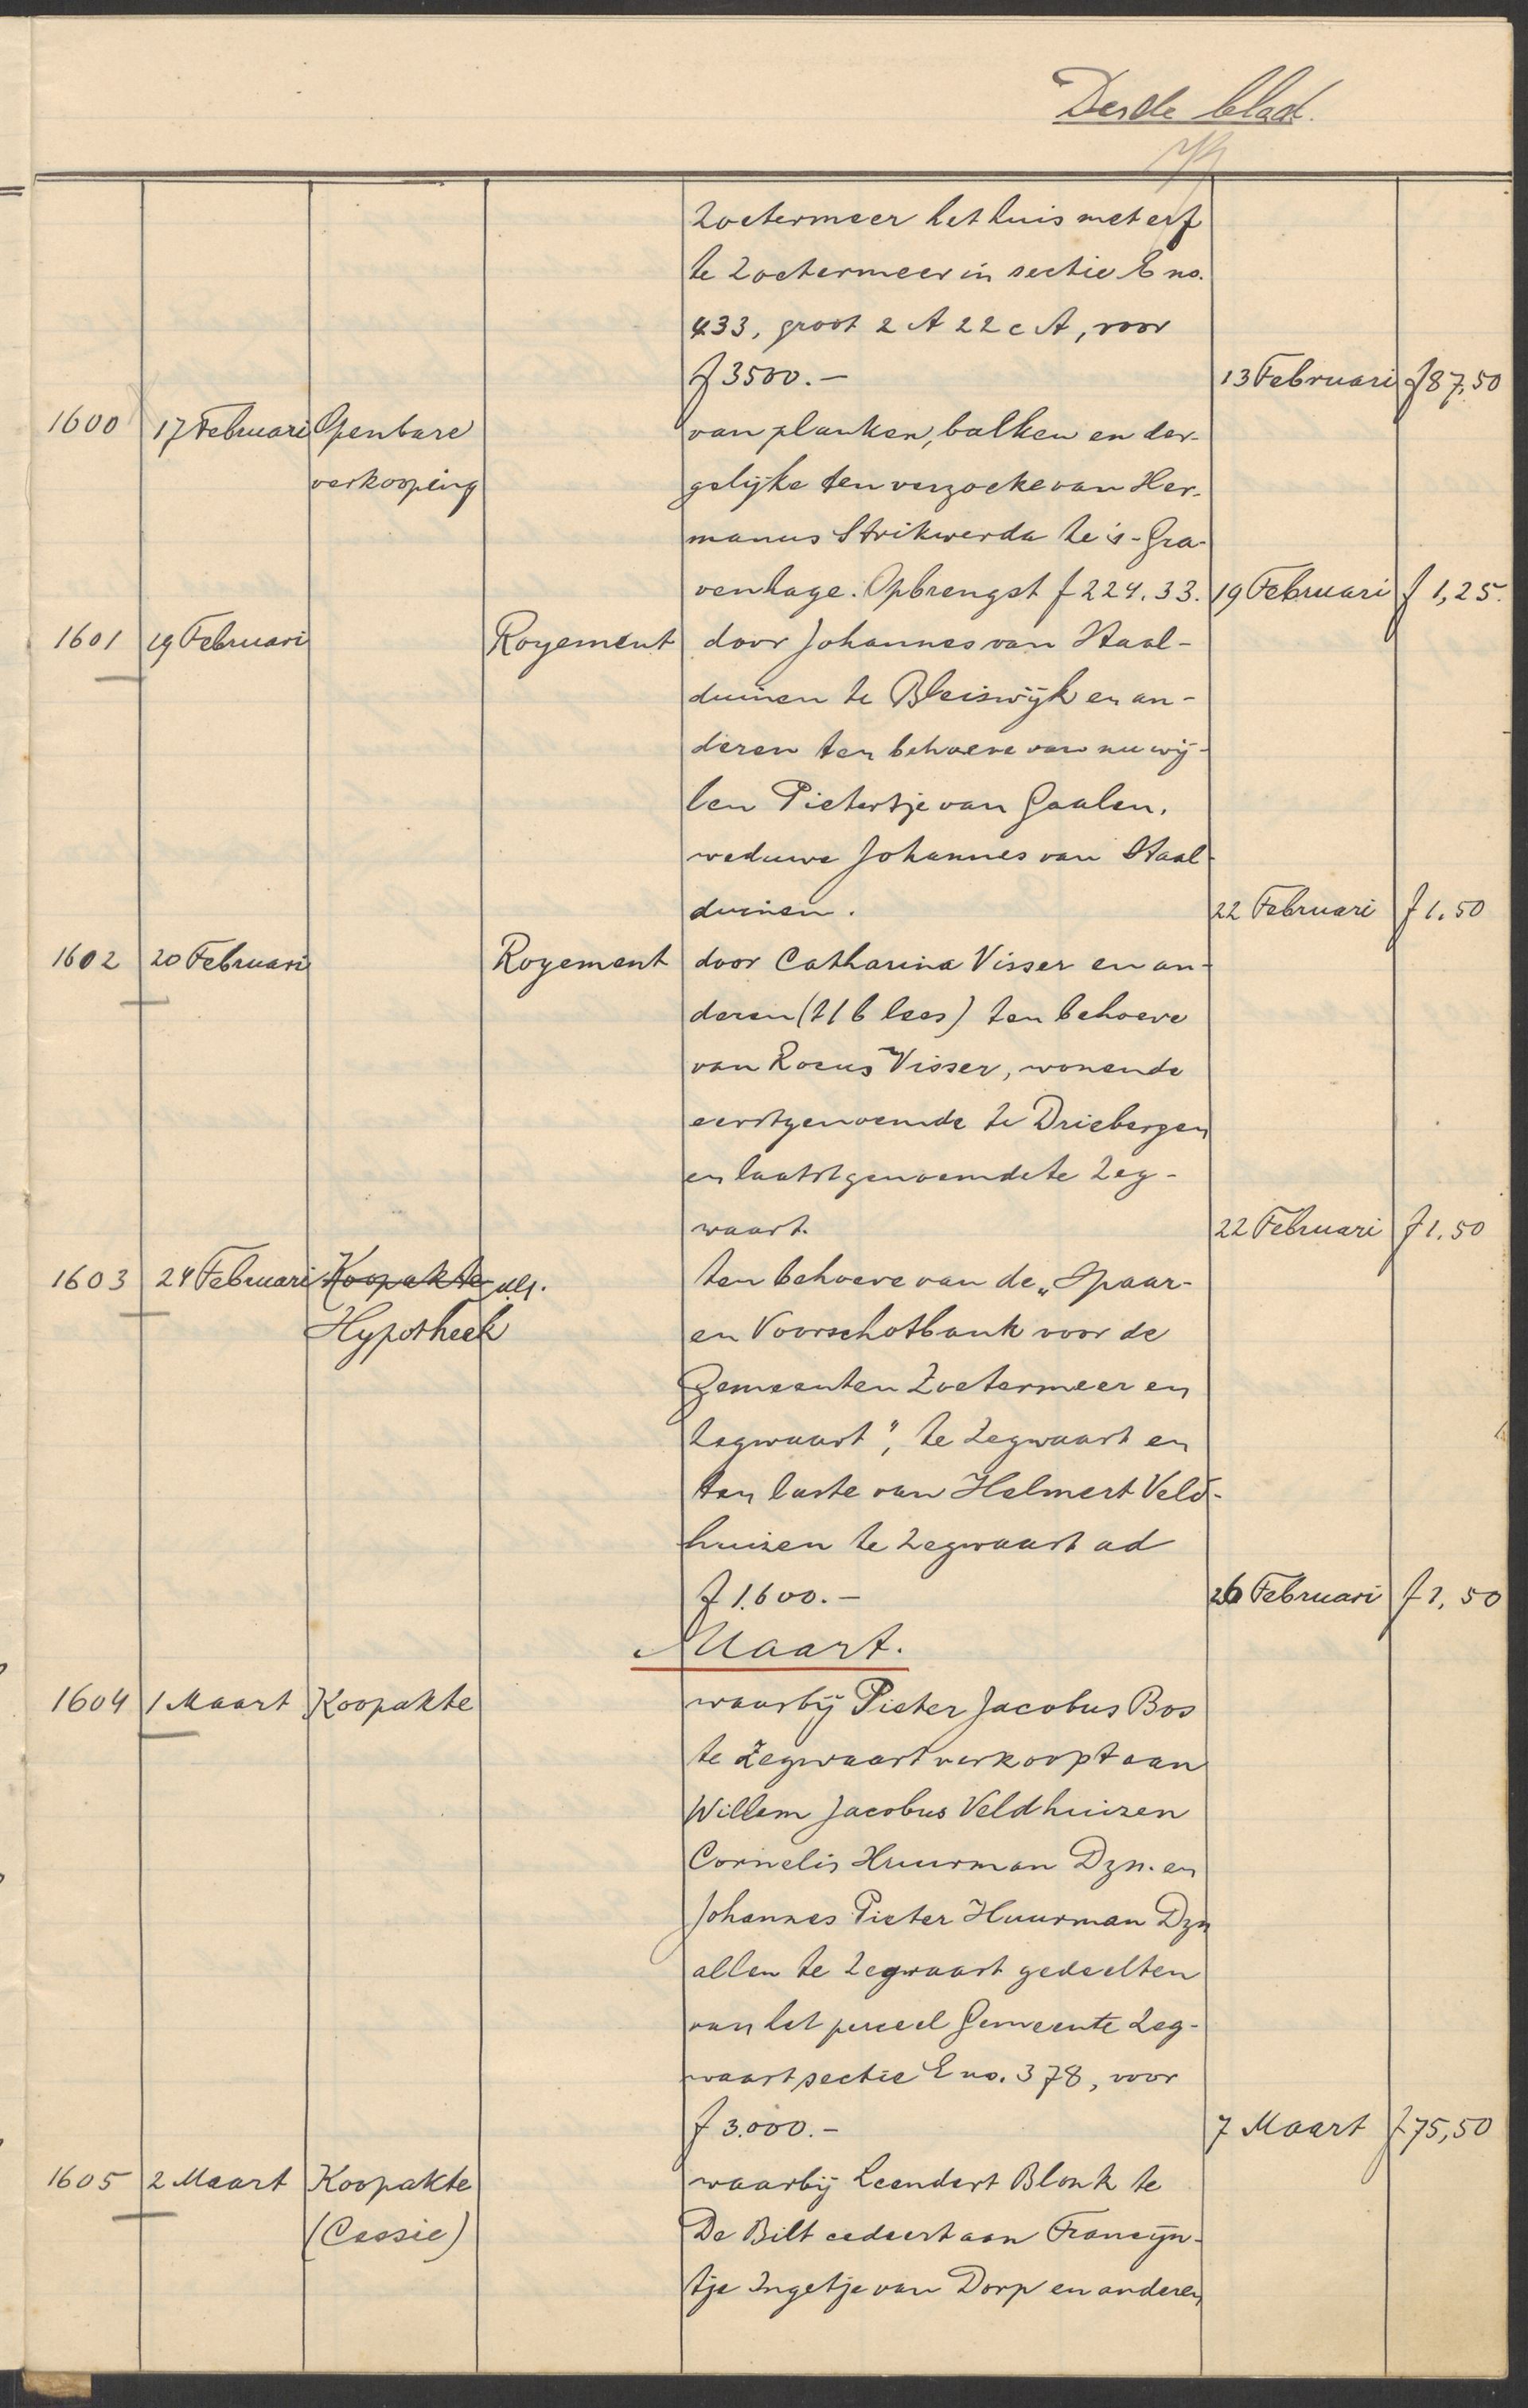 Derde blad.
Zoetermeer het huis met erf
te Zoetermeer in sectie E no.
433, groot 2 A 22 cA, voor
f 3500.- 13 Februari f 87,50
1600 17 Februari Openbare van planken, balken en der-
verkooping gelijke ten verzoeke van Her-
manus Strikwerda te 's-Gra-
venhage. Opbrengst f 224.33. 19 Februari f 1,25.
1601 19 Februari Royement door Johannes van Staal-
duinen te Bleiswijk en an-
deren ten behoeve van nu wij-
len Pietertje van Gaalen,
weduwe Johannes van Staal-
duinen. 22 Februari f 1.50
1602 20 Februari Royement door Catharina Visser en an-
deren ten behoeve
van Rocus Visser, wonende
eerstgenoemde te Driebergen
en laatstgenoemde te Zeg-
waart. 22 Februari f 1.50
1603 24 Februari Koopakte ten behoeve van de „Spaar-
Hypotheek en Voorschotbank voor de
Gemeenten Zoetermeer en
Zegwaart", te Zegwaart en
ten laste van Helmert Veld-
huizen te Zegwaart ad
f 1.600.- 26 Februari f 1,50
Maart.
1604 1 Maart Koopakte waarbij Pieter Jacobus Bos
te Zegwaart verkoopt aan
Willem Jacobus Veldhuizen
Cornelis Huurman Dzn. en
Johannes Pieter Huurman Dzn
allen te Zegwaart gedeelten
van het perceel Gemeente Zeg-
waart sectie E no. 378, voor
f 3.000.- 7 Maart f 75,50
1605 2 Maart Koopakte waarbij Leendert Blonk te
(Cessie) De Bilt cedeert aan Francijn-
tje Ingetje van Dorp en anderen